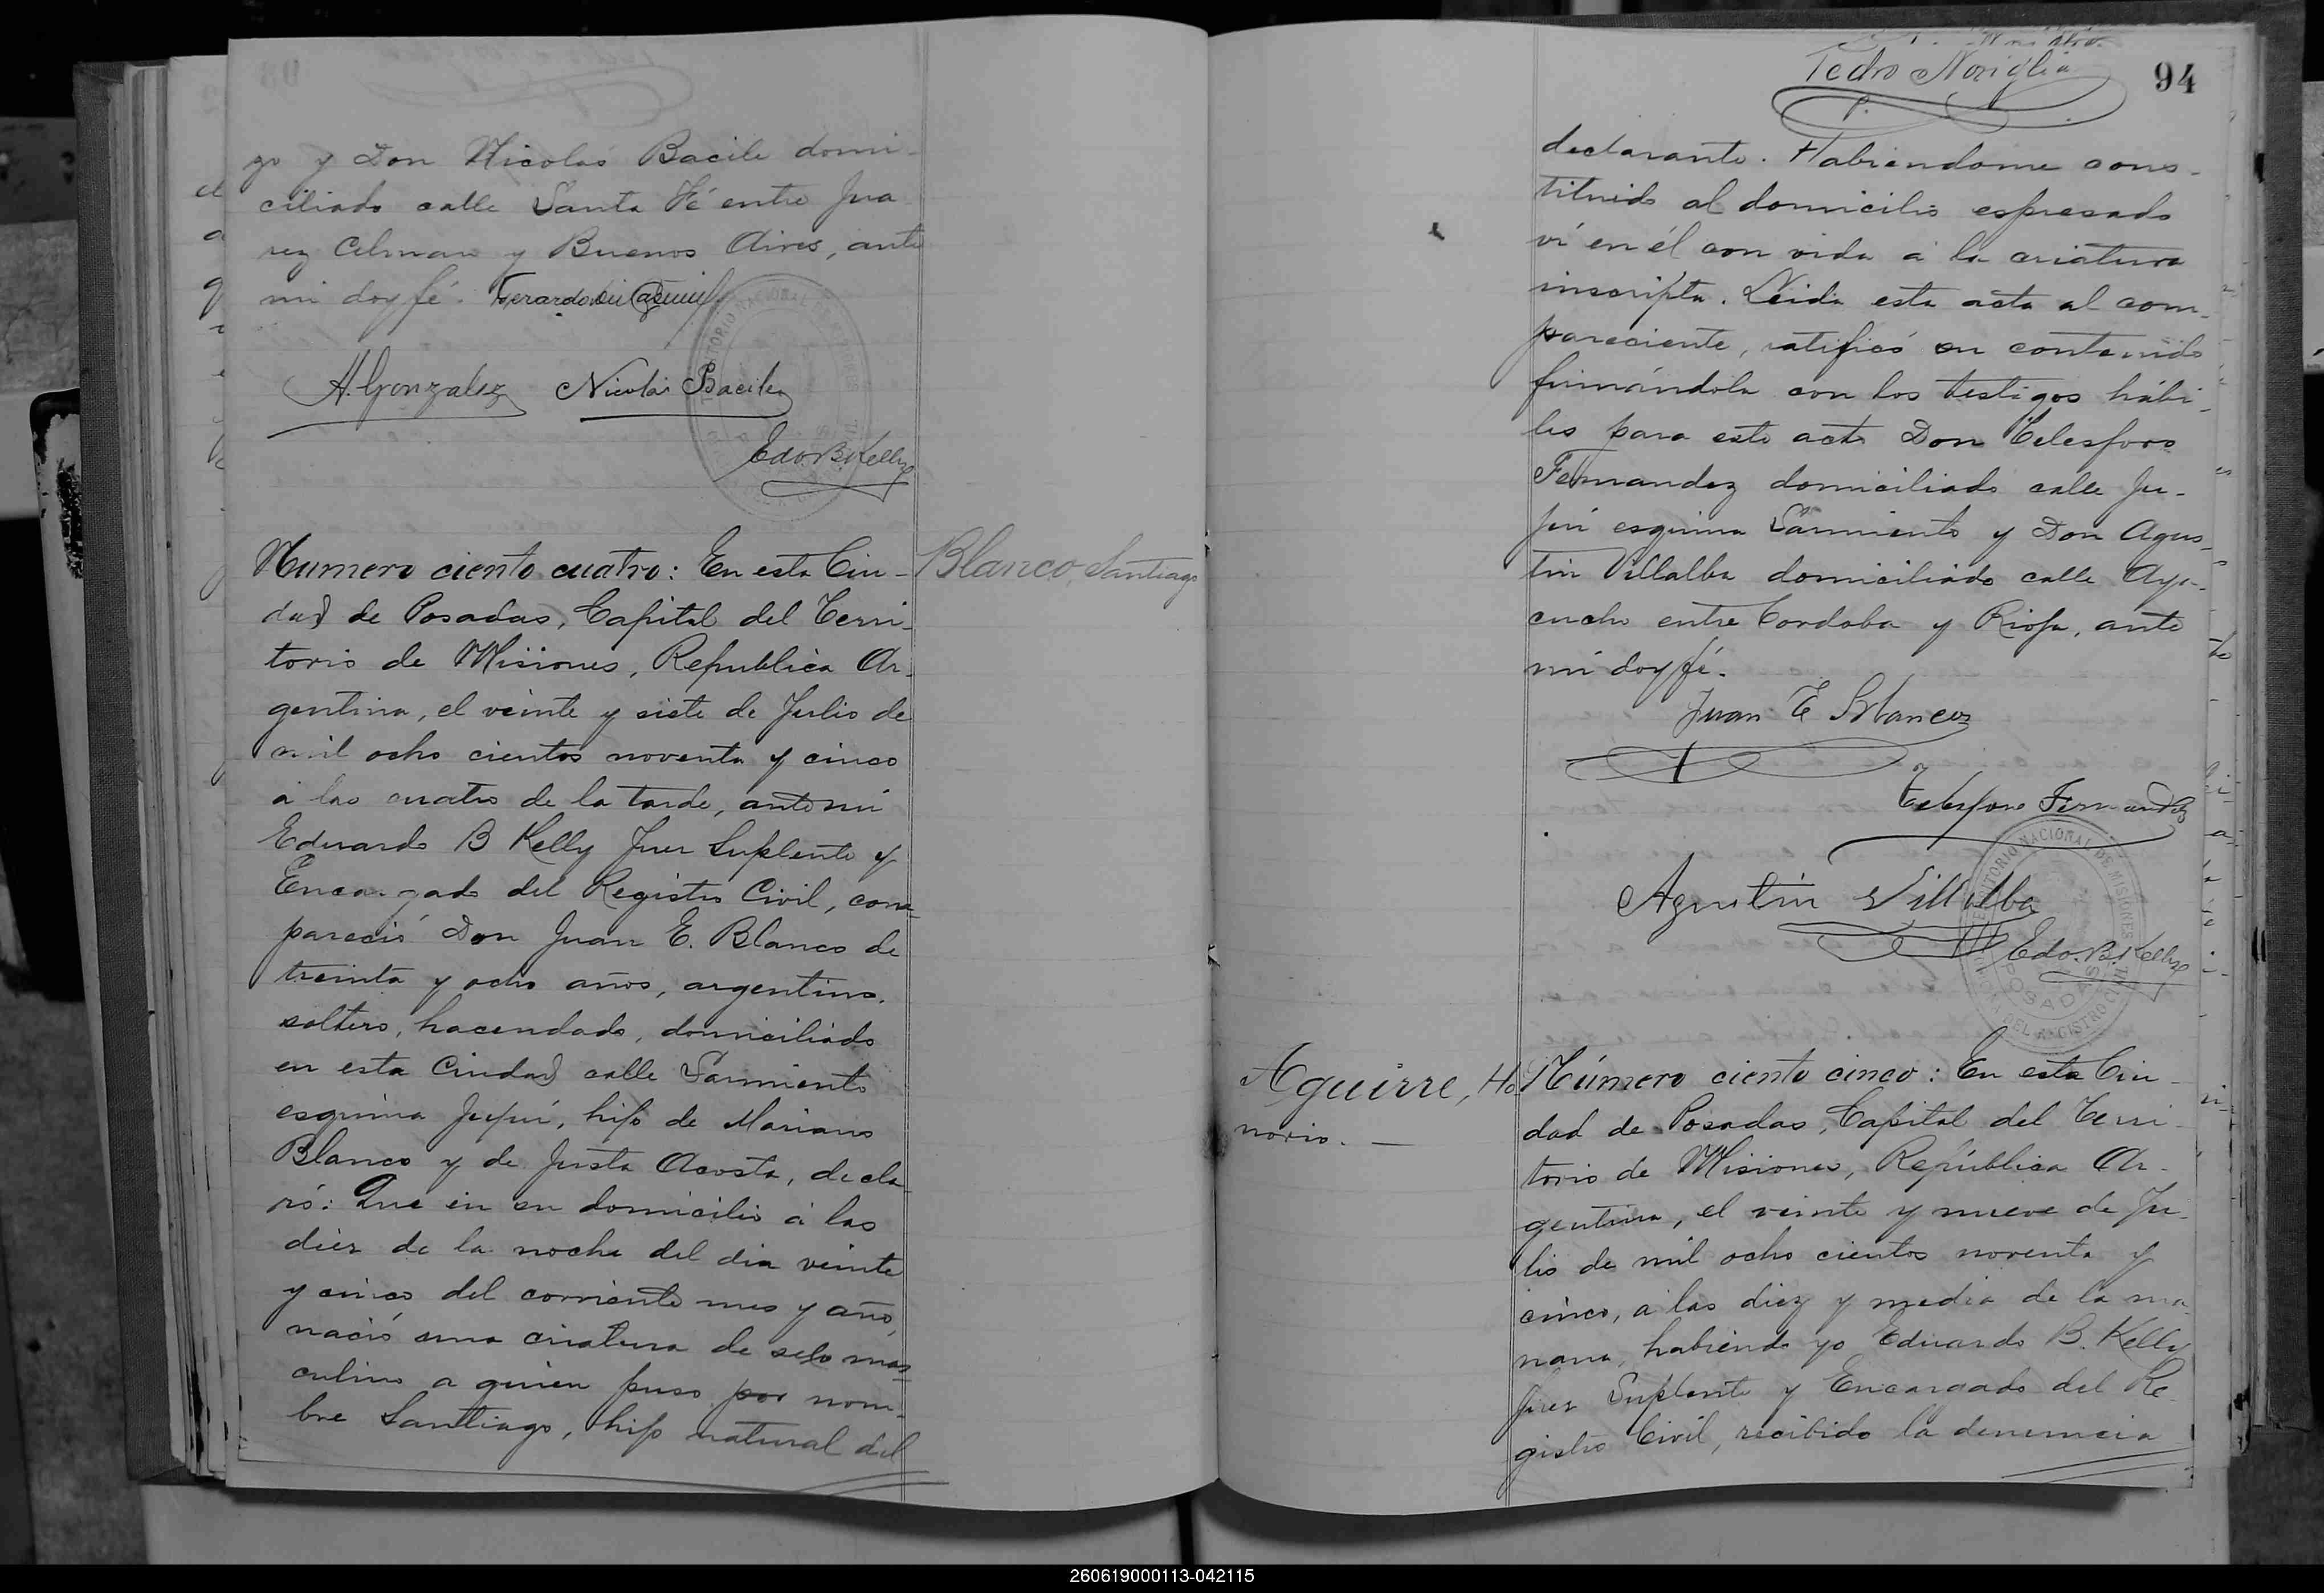 go y Don Nicolás Bacile domi-
ciliado calle Santa Fé entre Jua
rez Celman y Buenos Aires, ante
mi doy fé.
A. Gonzalez Nicolás Bacile
Edo. B. Kelly
Numero ciento cuatro: En esta Ciu-
dad de Posadas, Capital del Terri-
torio de Misiones, Republica Ar-
gentina, el veinte y siete de Julio de
mil ocho cientos noventa y cinco
á las cuatro de la tarde, ante mi
Eduardo B Kelly Juez Suplente y
Encargado del Registro Civil, com-
pareció Don Juan E. Blanco de
treinta y ocho años, argentino,
soltero, hacendado, domiciliado
en esta Ciudad calle Sarmiento
esquina Jujuí, hijo de Mariano
Blanco y de Justa Acosta, decla-
ró: Que en su domicilio á las
diez de la noche del dia veinte
y cinco del corriente mes y año,
nació una criatura de sexo mas-
culino a quien puso por nom-
bre Santiago, hijo natural del
Blanco, Santiago
Pedro Noriglia
94
declarante. Habiendome cons-
tituido al domicilio espresado
ví en él con vida á la criatura
inscripta. Leida esta acta al com-
pareciente, ratificó su contenido
firmándola con los testigos hábi-
les para este acto Don Telesforo
Fernandez domiciliado calle Ju-
juí esquina Sarmiento y Don Agus-
tin Villalba domiciliado calle Aya-
cucho entre Cordoba y Rioja, ante
mi doy fé.
Juan E Blanco
Telesforo Fernandez
Agustin Villalba
Edo. B. Kelly
TERRITORIO NACIONAL DE MISIONES
OFICINA DEL REGISTRO CIVIL
POSADAS
Aguirre, Ho-
norio. —
Número ciento cinco: En esta Ciu-
dad de Posadas, Capital del Terri-
torio de Misiones, República Ar-
gentina, el veinte y nueve de Ju-
lio de mil ocho cientos noventa y
cinco, á las diez y media de la ma-
ñana, habiendo yo Eduardo B. Kelly
Juez Suplente y Encargado del Re-
gistro Civil, recibido la denuncia
260619000113-042115